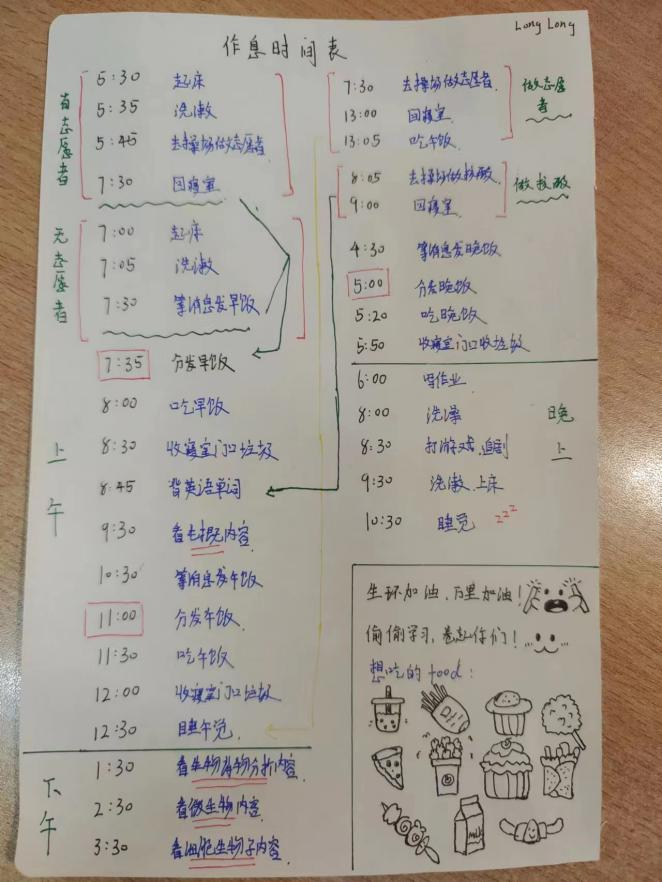 Long Long
作息时间表
有志愿者
5:30 起床
5:35 洗漱
5:45 去操场做志愿者
7:30 回寝室
无志愿者
7:00 起床
7:05 洗漱
7:30 等消息发早饭
7:35 分发早饭
上午
8:00 吃早饭
8:30 收寝室门口垃圾
8:45 背英语单词
9:30 看毛概内容
10:30 等消息发午饭
11:00 分发午饭
11:30 吃午饭
12:00 收寝室门口垃圾
12:30 睡午觉
下午
1:30 看生物药物分析内容
2:30 看微生物内容
3:30 看细胞生物子内容
7:30 去操场做志愿者
13:00 回寝室
13:05 吃午饭
做志愿者
8:05 去操场做核酸
9:00 回寝室
做核酸
4:30 等消息发晚饭
5:00 分发晚饭
5:20 吃晚饭
5:50 收寝室门口收垃圾
晚上
6:00 写作业
8:00 洗澡
8:30 打游戏、追剧
9:30 洗漱、上床
10:30 睡觉 zzz
生环加油,万里加油!
偷偷学习,卷起你们!
想吃的food:
milk